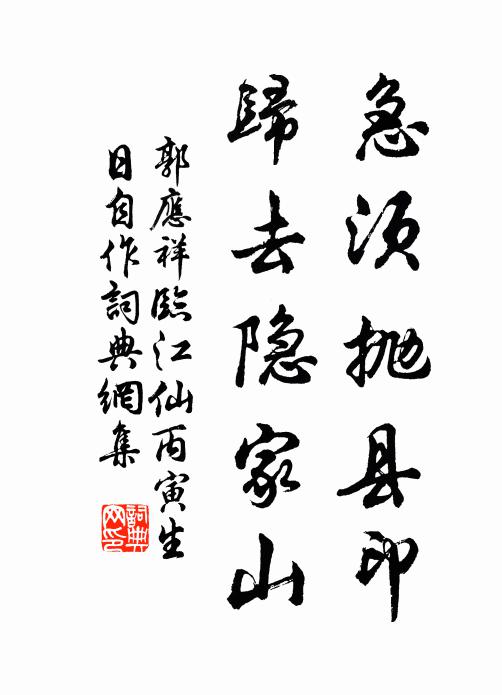 急须抛县印
歸去隐家山
郭應祥臨江仙丙寅生
日自作詞典網集
詞典
网印